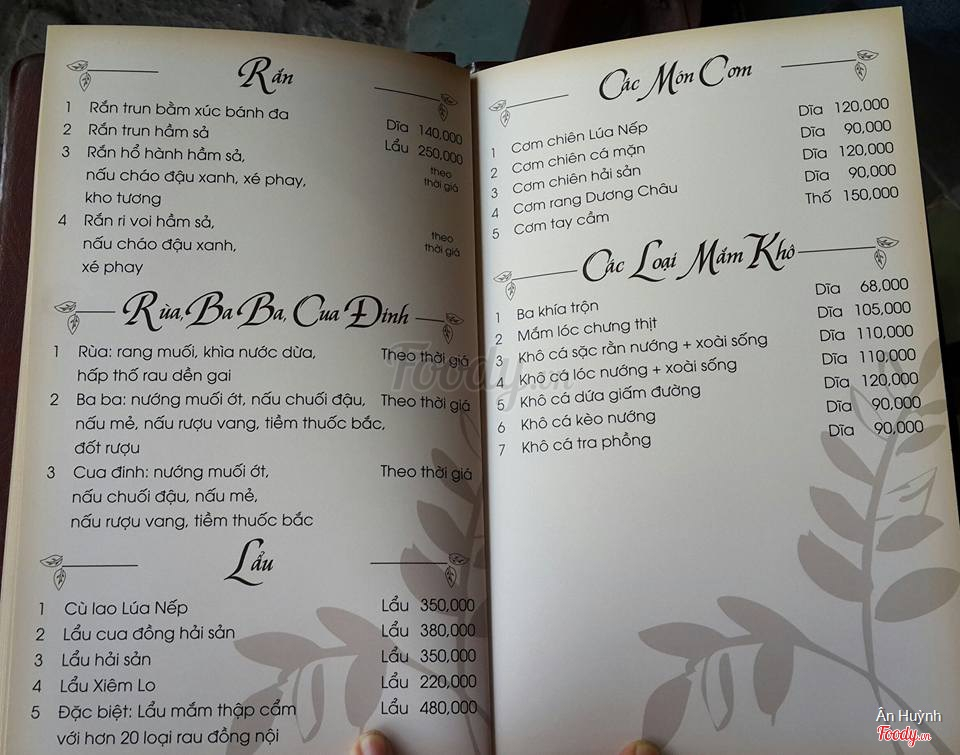 Rắn
1 Rắn trun bằm xúc bánh đa Dĩa 140,000
2 Rắn trun hầm sả Lẩu 250,000
3 Rắn hổ hành hầm sả, theo
nấu cháo đậu xanh, xé phay, thời giá
kho tương
4 Rắn ri voi hầm sả, theo
nấu cháo đậu xanh, thời giá
xé phay
Rùa, Ba Ba, Cua Đinh
1 Rùa: rang muối, khìa nước dừa, Theo thời giá
hấp thố rau dền gai
2 Ba ba: nướng muối ớt, nấu chuối đậu, Theo thời giá
nấu mẻ, nấu rượu vang, tiềm thuốc bắc,
đốt rượu
3 Cua đinh: nướng muối ớt, Theo thời giá
nấu chuối đậu, nấu mẻ,
nấu rượu vang, tiềm thuốc bắc
Lẩu
1 Cù lao Lúa Nếp Lẩu 350,000
2 Lẩu cua đồng hải sản Lẩu 380,000
3 Lẩu hải sản Lẩu 350,000
4 Lẩu Xiêm Lo Lẩu 220,000
5 Đặc biệt: Lẩu mắm thập cẩm Lẩu 480,000
với hơn 20 loại rau đồng nội
Các Món Cơm
1 Cơm chiên Lúa Nếp Dĩa 120,000
2 Cơm chiên cá mặn Dĩa 90,000
3 Cơm chiên hải sản Dĩa 120,000
4 Cơm rang Dương Châu Dĩa 90,000
5 Cơm tay cầm Thố 150,000
Các Loại Mắm Khô
1 Ba khía trộn Dĩa 68,000
2 Mắm lóc chưng thịt Dĩa 105,000
3 Khô cá sặc rằn nướng + xoài sống Dĩa 110,000
4 Khô cá lóc nướng + xoài sống Dĩa 110,000
5 Khô cá dứa giấm đường Dĩa 120,000
6 Khô cá kèo nướng Dĩa 90,000
7 Khô cá tra phồng Dĩa 90,000
Foody.vn
Ân Huỳnh
Foody.vn